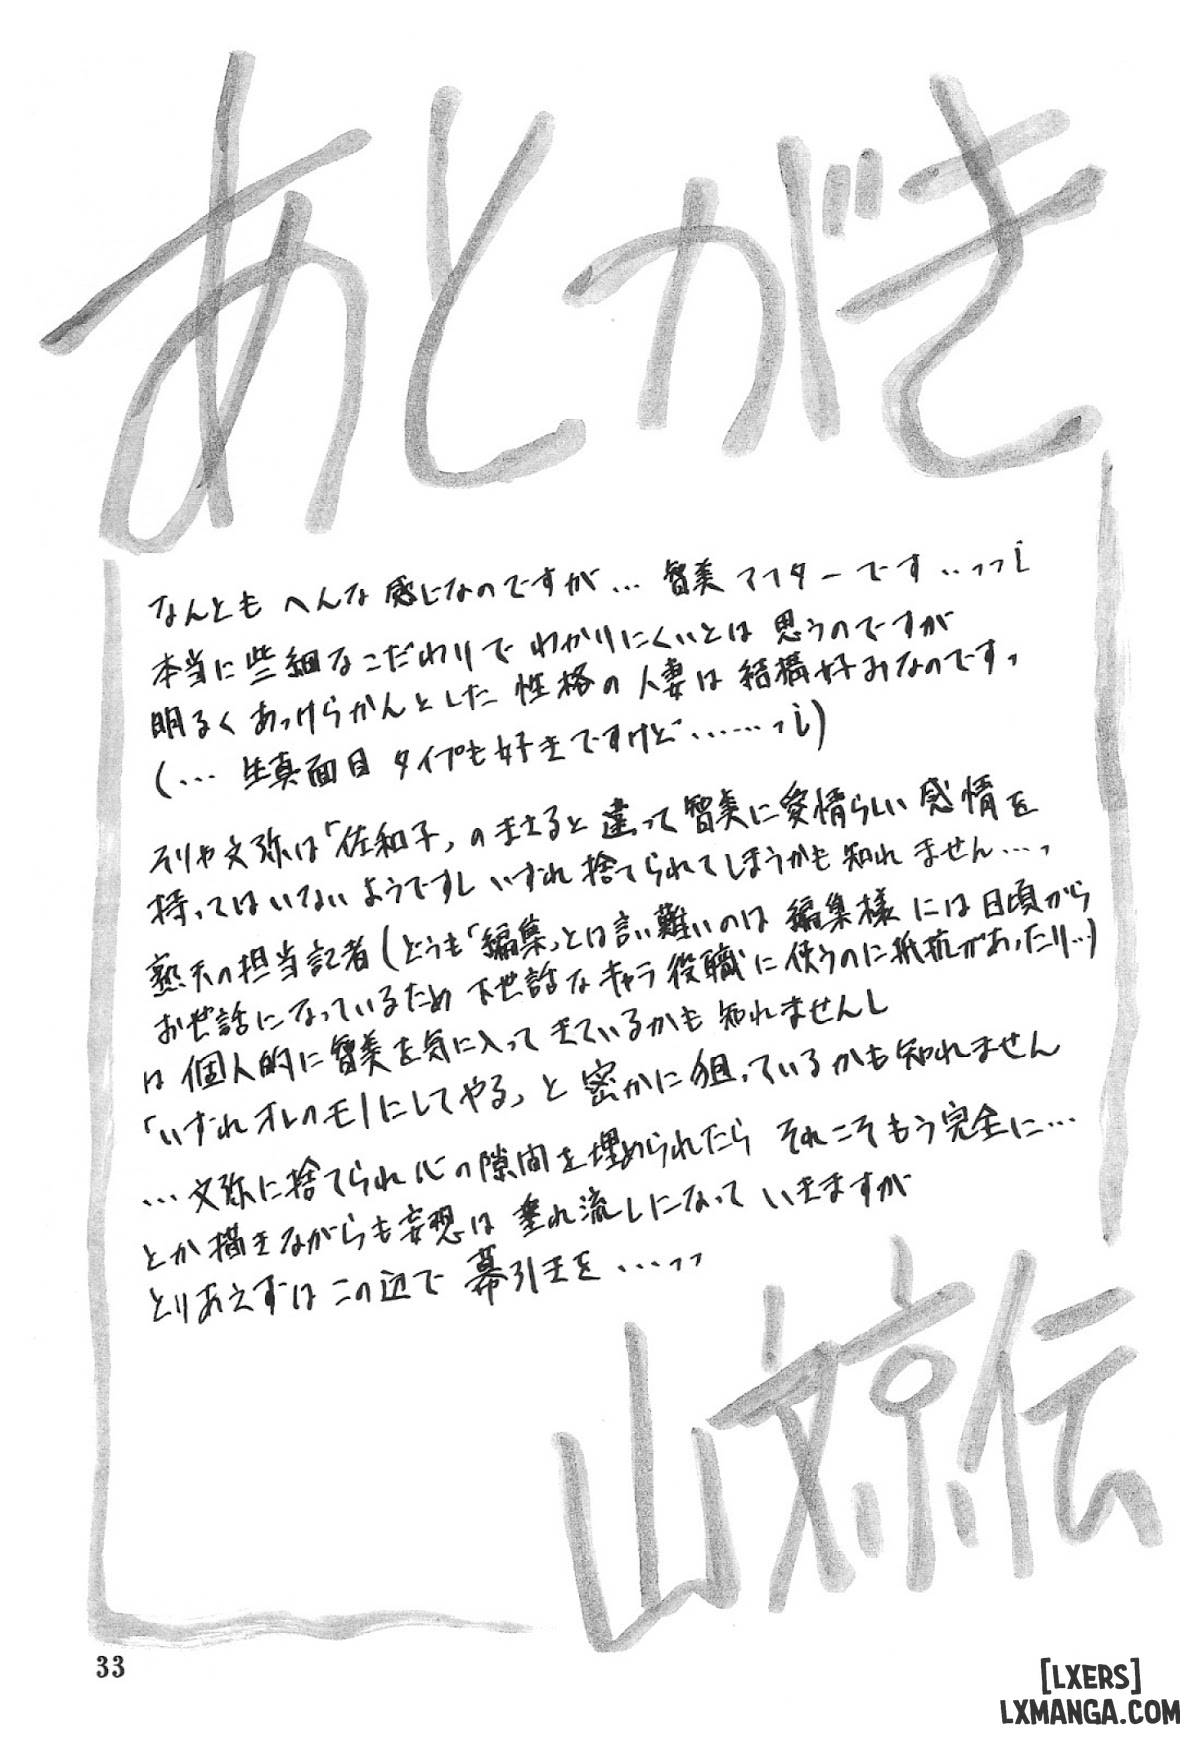 あとがき
なんとも へんな感じなのですが… 智美アフターです‥‥っっ；
本当に些細なこだわりで わかりにくいとは 思うのですが
明るく あっけらかんとした 性格の人妻は 結構好みなのですっ
(… 生真面目 タイプも好きですけど………っ；)
そりゃ文弥は「佐和子」のまさると違って智美に愛情らしい感情を
持ってはいないようですし いずれ捨てられてしまうかも知れません…っ
熟天の担当記者(どうも「編集」とは言い難いのは 編集様には日頃から
お世話になっているため 下世話なキャラ役職に使うのに抵抗があったり…)
は個人的に智美を気に入ってきているかも知れませんし
「いずれオレのモノにしてやる」と密かに狙っているかも知れません
…文弥に捨てられ心の隙間を埋められたら それこそもう完全に…
とか描きながらも妄想は 垂れ流しになって いきますが
とりあえずは この辺で 幕引きを…っっ
山文京伝
33
[LXERS]
LXMANGA.COM